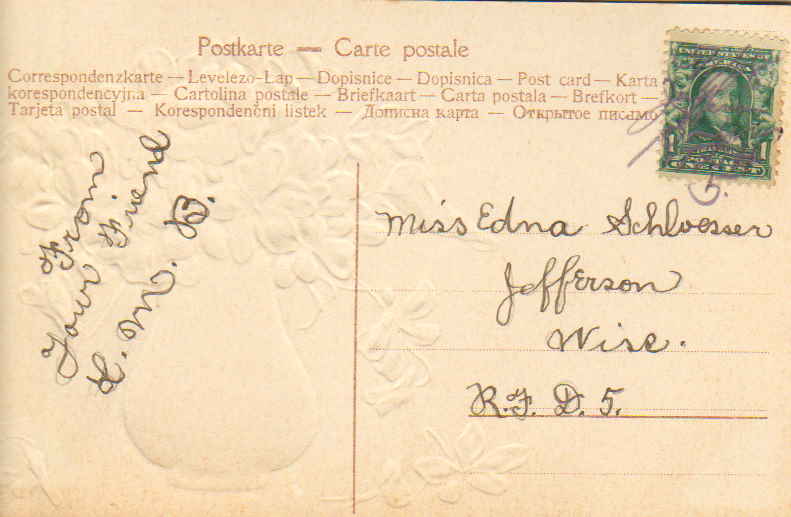 Postkarte — Carte postale
Correspondenzkarte — Levelezo-Lap — Dopisnice — Dopisnica — Post card — Karta
korespondencyjna — Cartolina postale — Briefkaart — Carta postala — Brefkort —
Tarjeta postal — Korespondenčni listek — Дописна карта — Открытое писамо
UNITED STATES OF
AMERICA
1 FRANKLIN 1
POSTAGE
ONE CENT
5.
From
Your Friend
L. M. B.
Miss Edna Schloesser
Jefferson
Wisc.
R.F. D. 5.